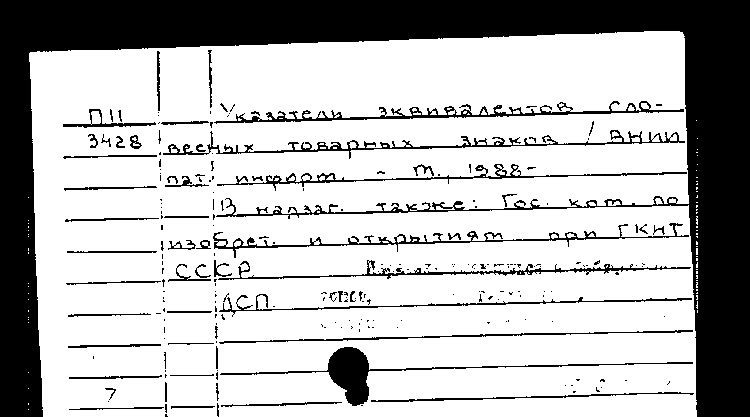 П11 Указатели эквивалентов сло-
3428 весных товарных знаков / ВНИИ
пат. информ. - М., 1988-
В надзаг. также: Гос. ком. по
изобрет. и открытиям при ГКНТ
СССР
ДСП
7